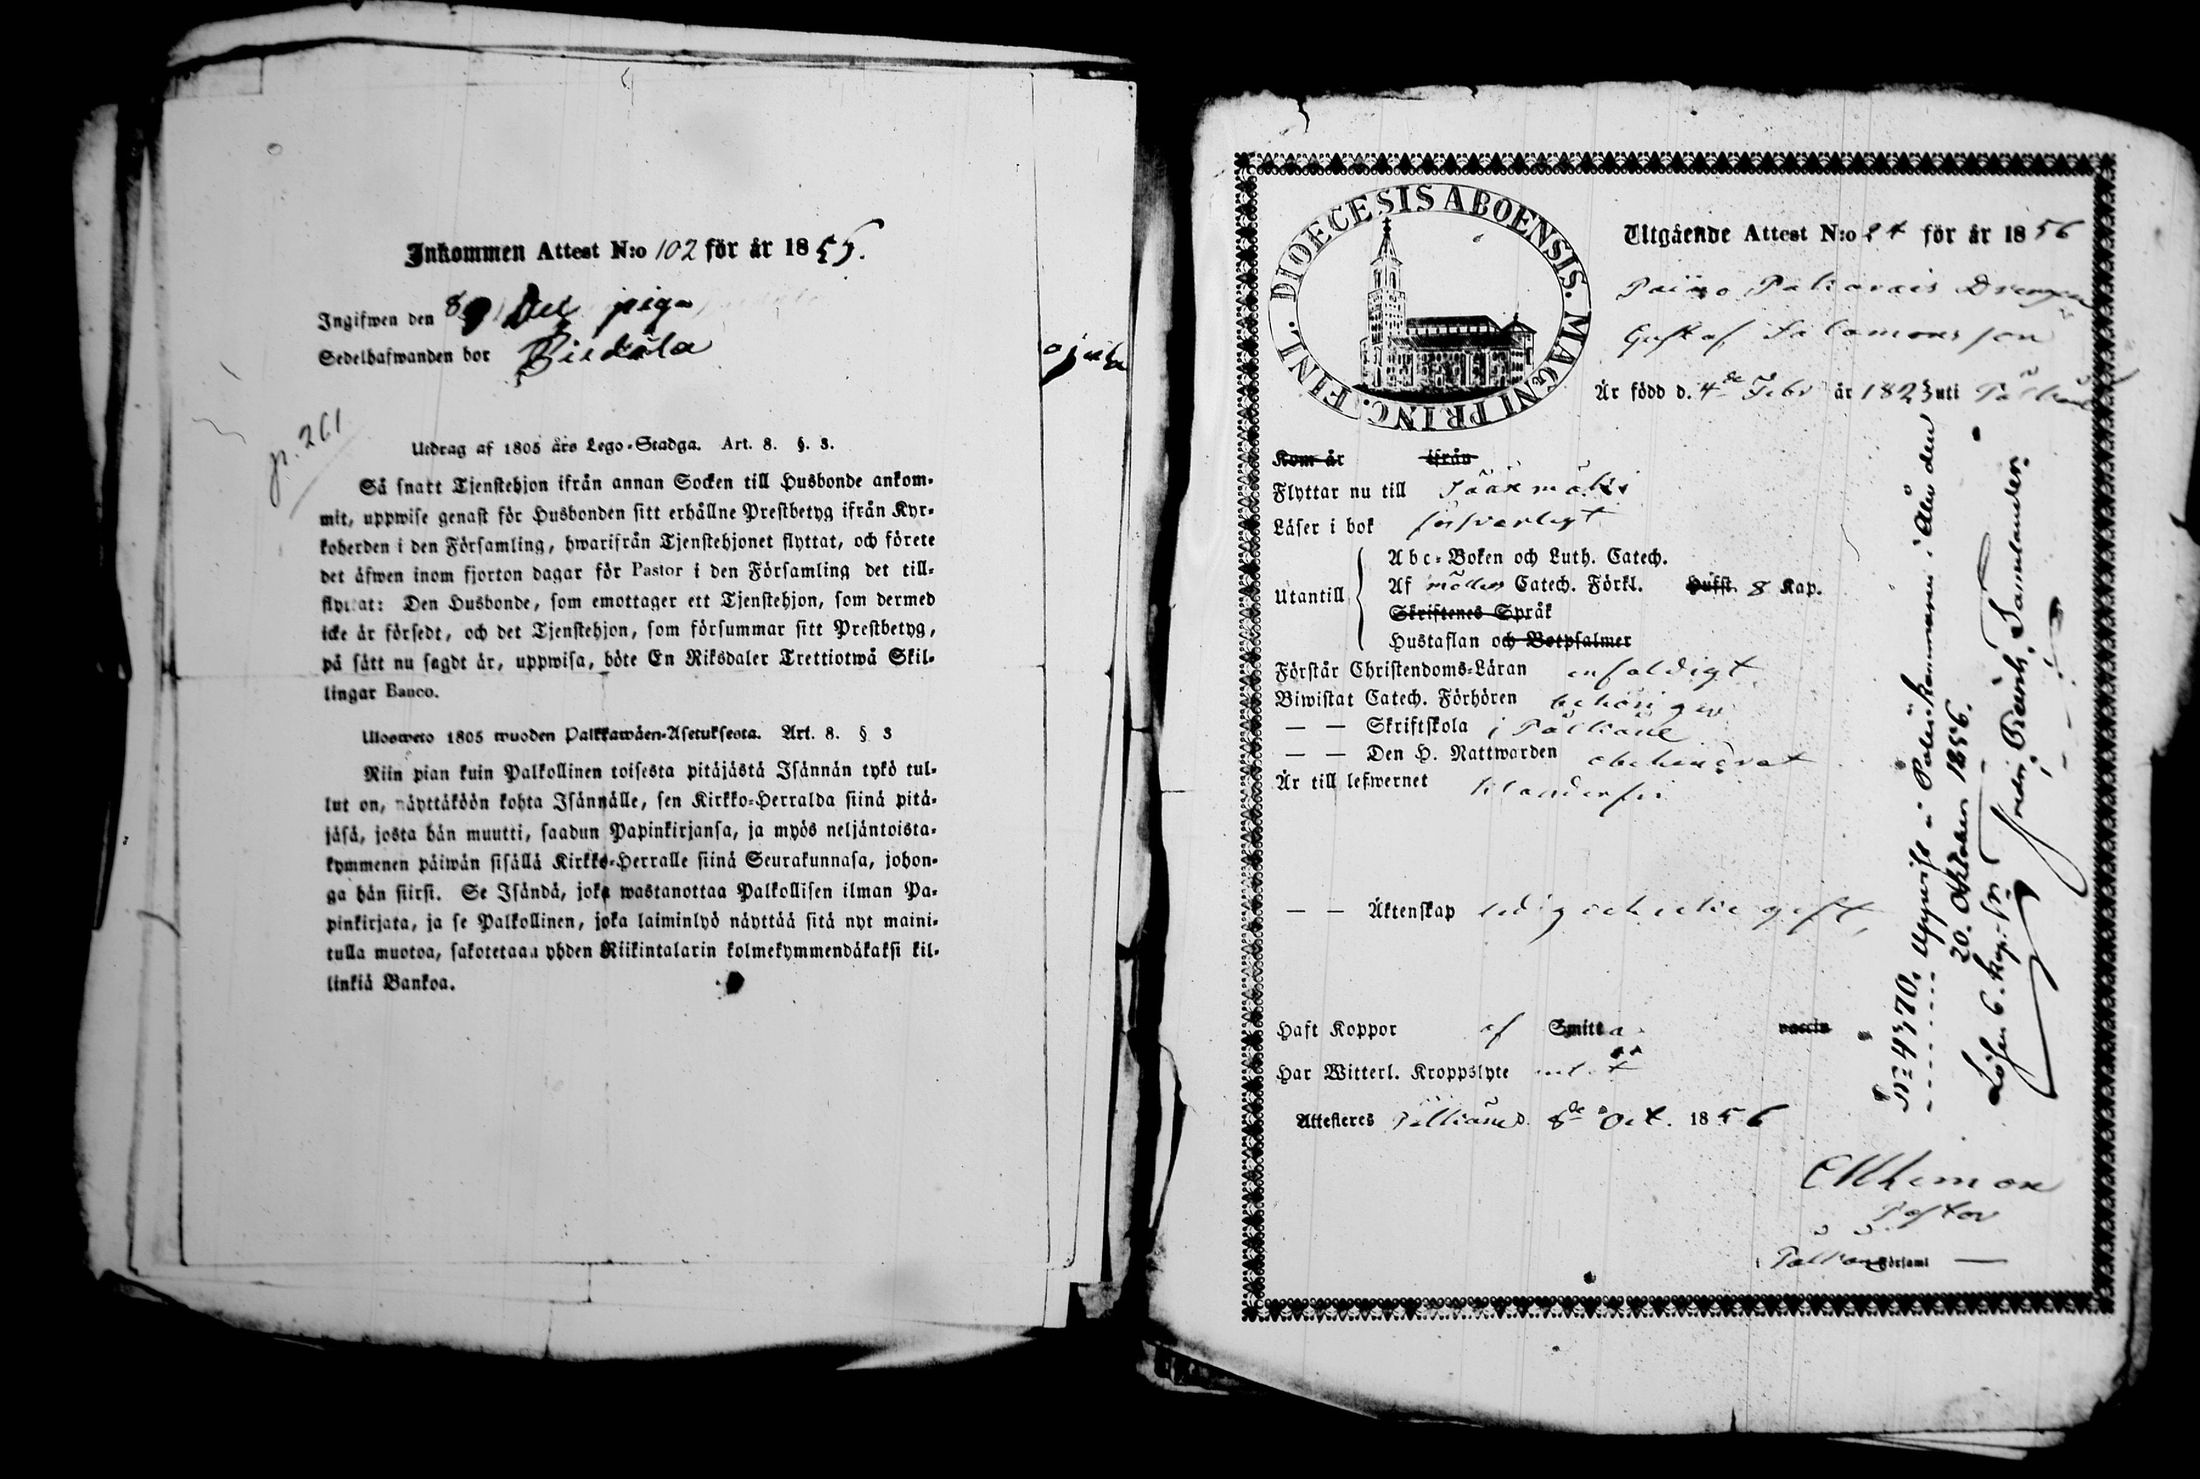 Inkommen Attest N:o 102 för år 185
Ingifwen den
Sedelhafwanden bor
p. 261
Utdrag af 1805 års Lego-Stadga. Art. 8. §. 3.
Så snart Tjenstehjon ifrån annan Socken till Husbonde ankom-
mit, uppwise genast för Husbonden sitt erhållne Prestbetyg ifrån Kyr-
koherden i den Församling, hwarifrån Tjenstehjonet flyttat, och förete
det äfwen inom fjorton dagar för Pastor i den Församling det till-
flyttat: Den Husbonde, som emottager ett Tjenstehjon, som dermed
icke är försedt, och det Tjenstehjon, som försummar sitt Prestbetyg,
på sätt nu sagdt är, uppwisa, böte En Riksdaler Trettiotwå Skil-
lingar Banco.
Ulosweto 1805 wuoden Palkkawäen-Asetuksesta. Art. 8. § 3
Niin pian kuin Palkollinen toisesta pitäjästä Isännän tykö tul-
lut on, näyttäköön kohta Isännälle, sen Kirkko-Herralda siinä pitä-
jäsä, josta hän muutti, saadun Papinkirjansa, ja myös neljäntoista-
kymmenen päiwän sisällä Kirkko-Herralle siinä Seurakunnasa, johon-
ga hän siirsi. Se Isändä, joka wastanottaa Palkollisen ilman Pa-
pinkirjata, ja se Palkollinen, joka laiminlyö näyttää sitä nyt maini-
tulla muotoa, sakotetaan yhden Riikintalarin kolmekymmendäkaksi kil-
linkiä Bankoa.
DIOECESIS ABOENSIS. MAGNI PRINC. FINL.
Utgående Attest N:o 24 för år 1856
Drengen
Gustaf Salomonsson
Är född d. 4de Febr år 1823 uti Pälkäne
Kom år ifrån
Flyttar nu till Sääxmäki
Läser i bok försvarligt
Utantill
Abc-Boken och Luth. Catech.
Af Catech. Förkl. Hufst. 8 Kap.
Skriftenes Språk
Hustaflan och Botpsalmer
Förstår Christendoms-Läran enfaldigt
Biwistat Catech. Förhören behörigen
— — Skriftskola i Pälkäne
— — Den H. Nattwarden obehindrat
Är till lefwernet klanderfri
— — Äktenskap ledig och icke gift,
Haft Koppor af Smitta vaccin
Har Witterl. Kroppslyte
Attesteres Pälkäne d. 8de Oct. 1856
Pastor
i Pälkäne församl
N:o 4370. Uppvist i Polis-kammaren i Åbo den
20. Oktober 1856.
Lösen 6. Kop. S:r